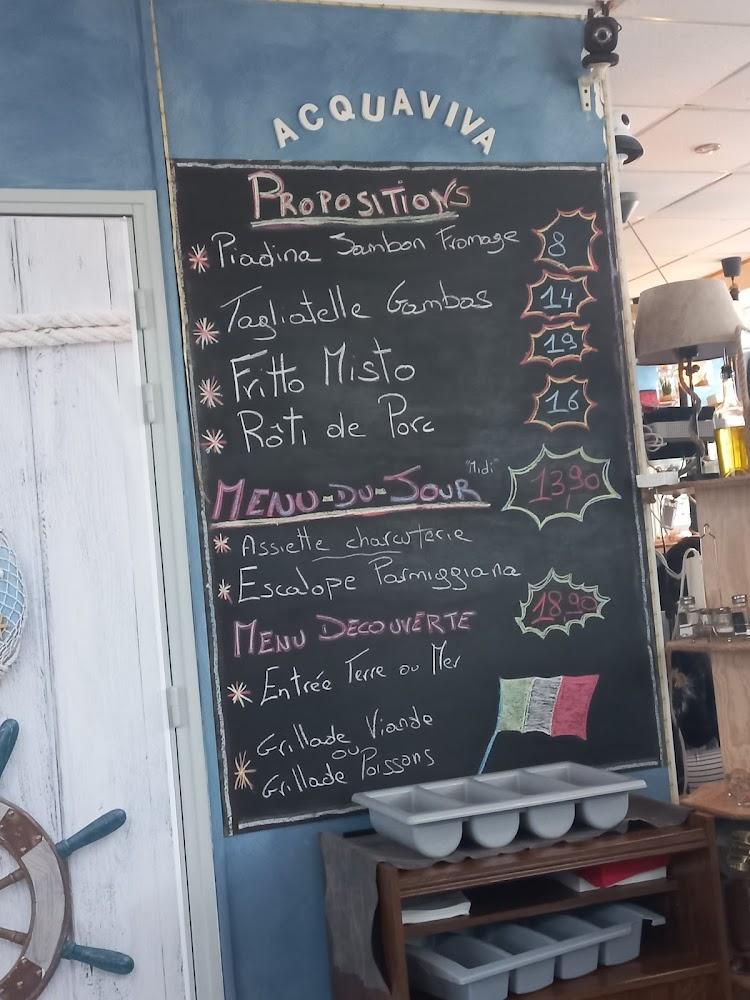 ACQUAVIVA
PROPOSITIONS
Piadina Jambon Fromage 8
Tagliatelle Gambas 14
Fritto Misto 19
Rôti de Porc 16
MENU-DU-JOUR "Midi" 13,90
Assiette charcuterie
Escalope Parmiggiana
MENU DECOUVERTE 18.90
Entrée Terre ou Mer
Grillade Viande
ou
Grillade Poissons